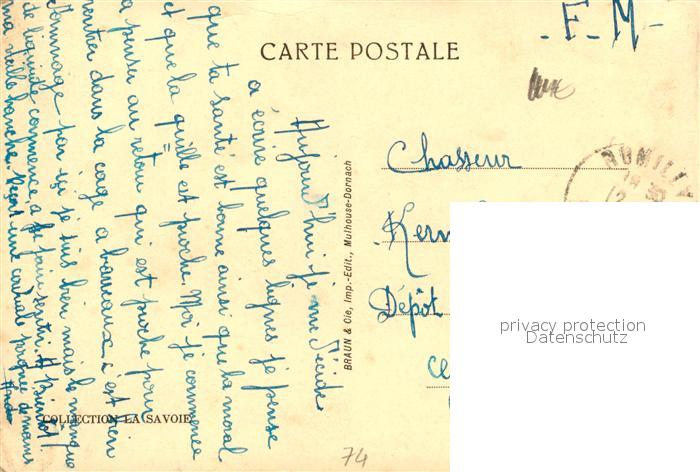 - F - M -
CARTE POSTALE
Chasseur
Kern
Dépôt
Ce
ROMILLY
BRAUN & Cie, Imp.-Edit., Mulhouse-Dornach
privacy protection
Datenschutz
Aujourd'hui je me décide
a écrire quelques lignes je pense
que ta santé est bonne ainsi que la moral
et que la quille est proche. Moi je commence
a penser au retour qui est proche pour
rentrer dans la cage a barreaux c'est bien
dommage par ici je suis bien mais le manque
de liquide commence a se faire sentir. A Bientôt
ma vieille branche. Reçoit une cordiale poignée de mains
COLLECTION LA SAVOIE
74